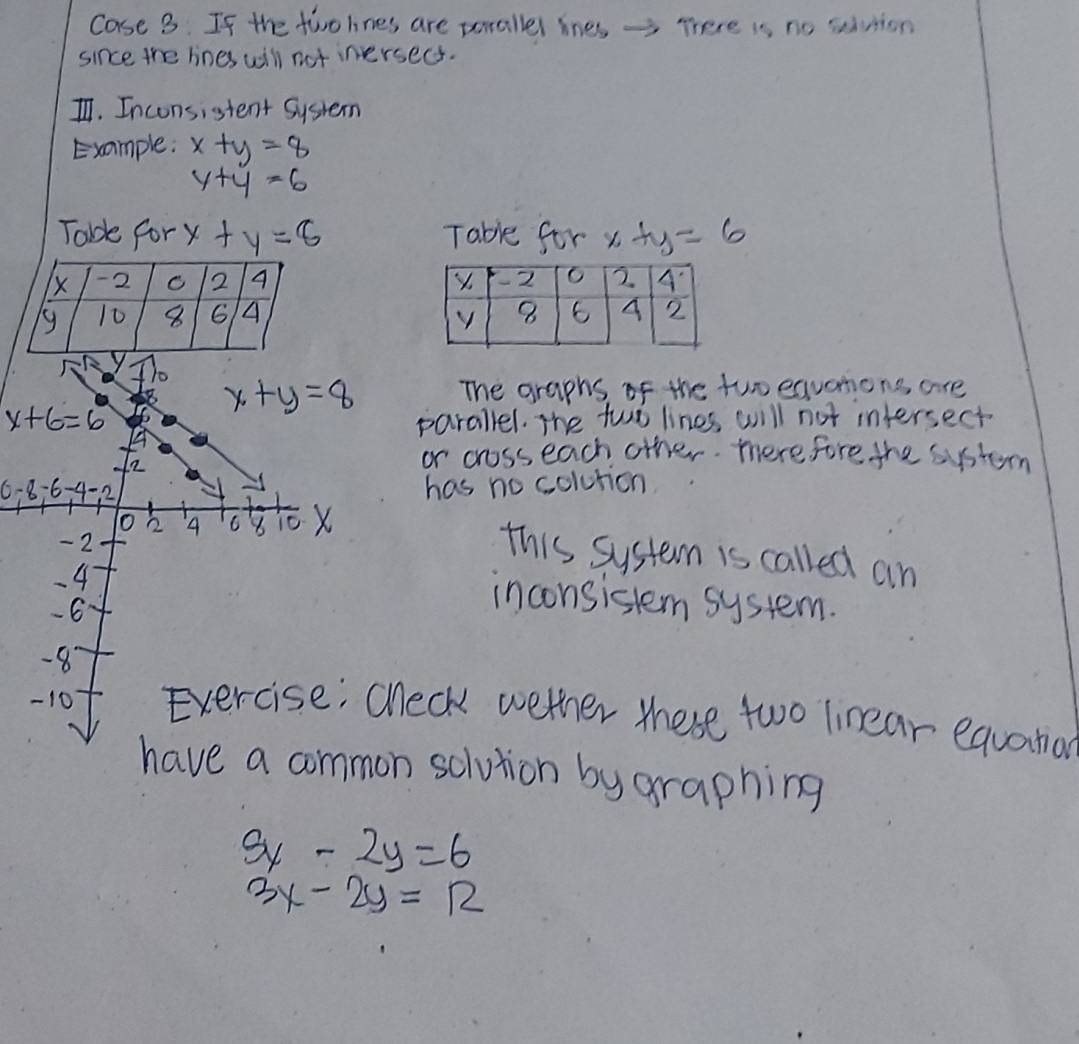 Case 3: If the two lines are parallel lines → There is no solution
since the lines will not inersect.
III. Inconsistent System
Example: x + y = 8
x + y = 6
Table for x + y = 8
Table for x + y = 6
x -2 0 2 4
y 10 8 6 4
x -2 0 2 4
y 8 6 4 2
y 10
8
x + y = 8
x + 6 = 6
6
4
2
-8 -6 -4 -2
0 2 4 6 8 10 X
-2
-4
-6
-8
-10
The graphs of the two equations are
parallel. The two lines will not intersect
or cross each other. Therefore the system
has no solution.
This system is called an
inconsistem system.
Exercise: Check wether these two linear equation
have a common solution by graphing
3x - 2y = 6
3x - 2y = 12